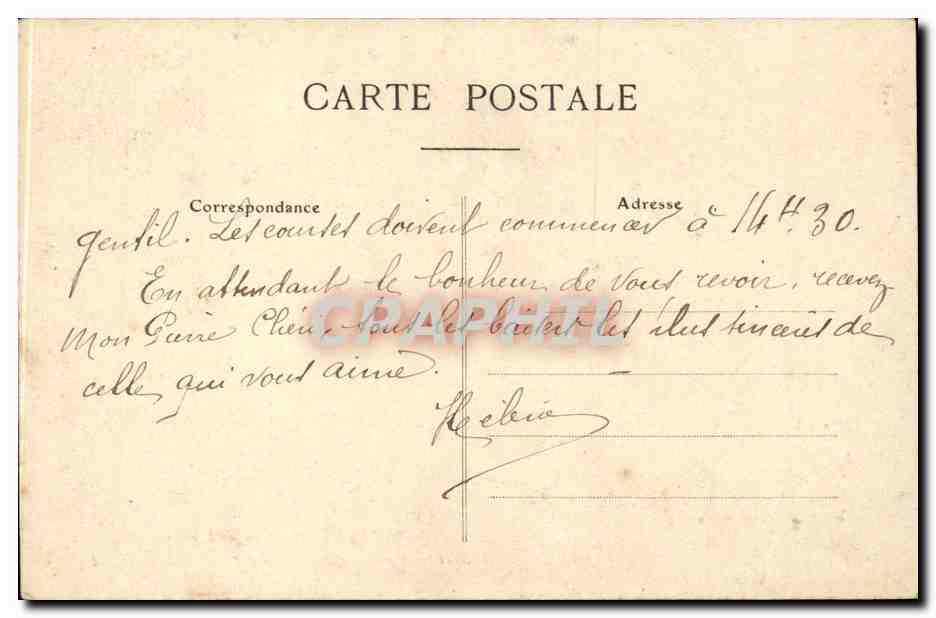 CARTE POSTALE
Correspondance
Adresse
gentil. Les courses doivent commencer à 14H30.
En attendant le bonheur de vous revoir, recevez
mon Pierre Chéri tous les baisers les plus sincères de
celle qui vous aime.
CPAPHIL